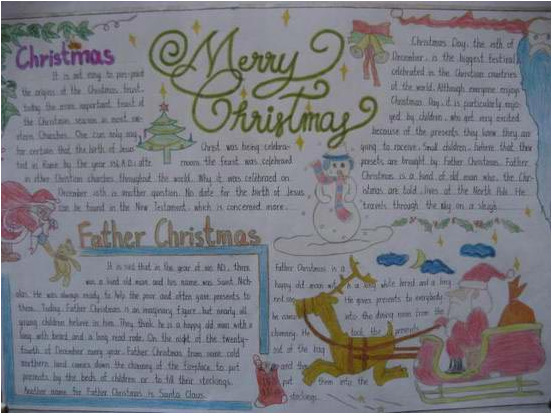 Christmas
It is not easy to pin-point
the origins of the Christmas feast,
today the most important feast of
the Christmas season in most wes-
tern Churches. One can only say
for certain that the birth of Jesus
Christ was being celebra-
ted in Rome by the year 354 A.D; alte
rwards the feast was celebrated
in other Christian churches throughout the world. Why it was celebrated on
December 25th is another question. No date for the birth of Jesus
can be found in the New Testament, which is concerned more
Merry
Christmas
Christmas Day, the 25th of
December, is the biggest festival
celebrated in the Christian countries
of the world. Although everyone enjoys
Christmas Day, it is particularly enjo-
yed by children, who get very excited
because of the presents they know they are
going to receive. Small children believe that their
presents are brought by Father Christmas. Father
Christmas is a kind of old man who, the Chr-
istmas are told, lives at the North Pole. He
travels through the sky on a sleigh
Father Christmas
It is said that in the year of 300 AD, there
was a kind old man and his name was Saint Nich-
olas. He was always ready to help the poor and often gave presents to
them. Today, Father Christmas is an imaginary figure, but nearly all
young children believe in him. They think he is a happy old man with a
long white beard and a long read robe. On the night of the twenty-
fourth of December every year, Father Christmas from some cold
northern land comes down the chimney of the fireplace to put
presents by the beds of children or to fill their stockings.
Another name for Father Christmas is Santa Claus.
Father Christmas is a
happy old man with a long white beard and a long
red robe. He gives presents to everybody
he comes into the dining room from the
chimney. He took the presents
out of the bag
and the
put them into the
stockings.